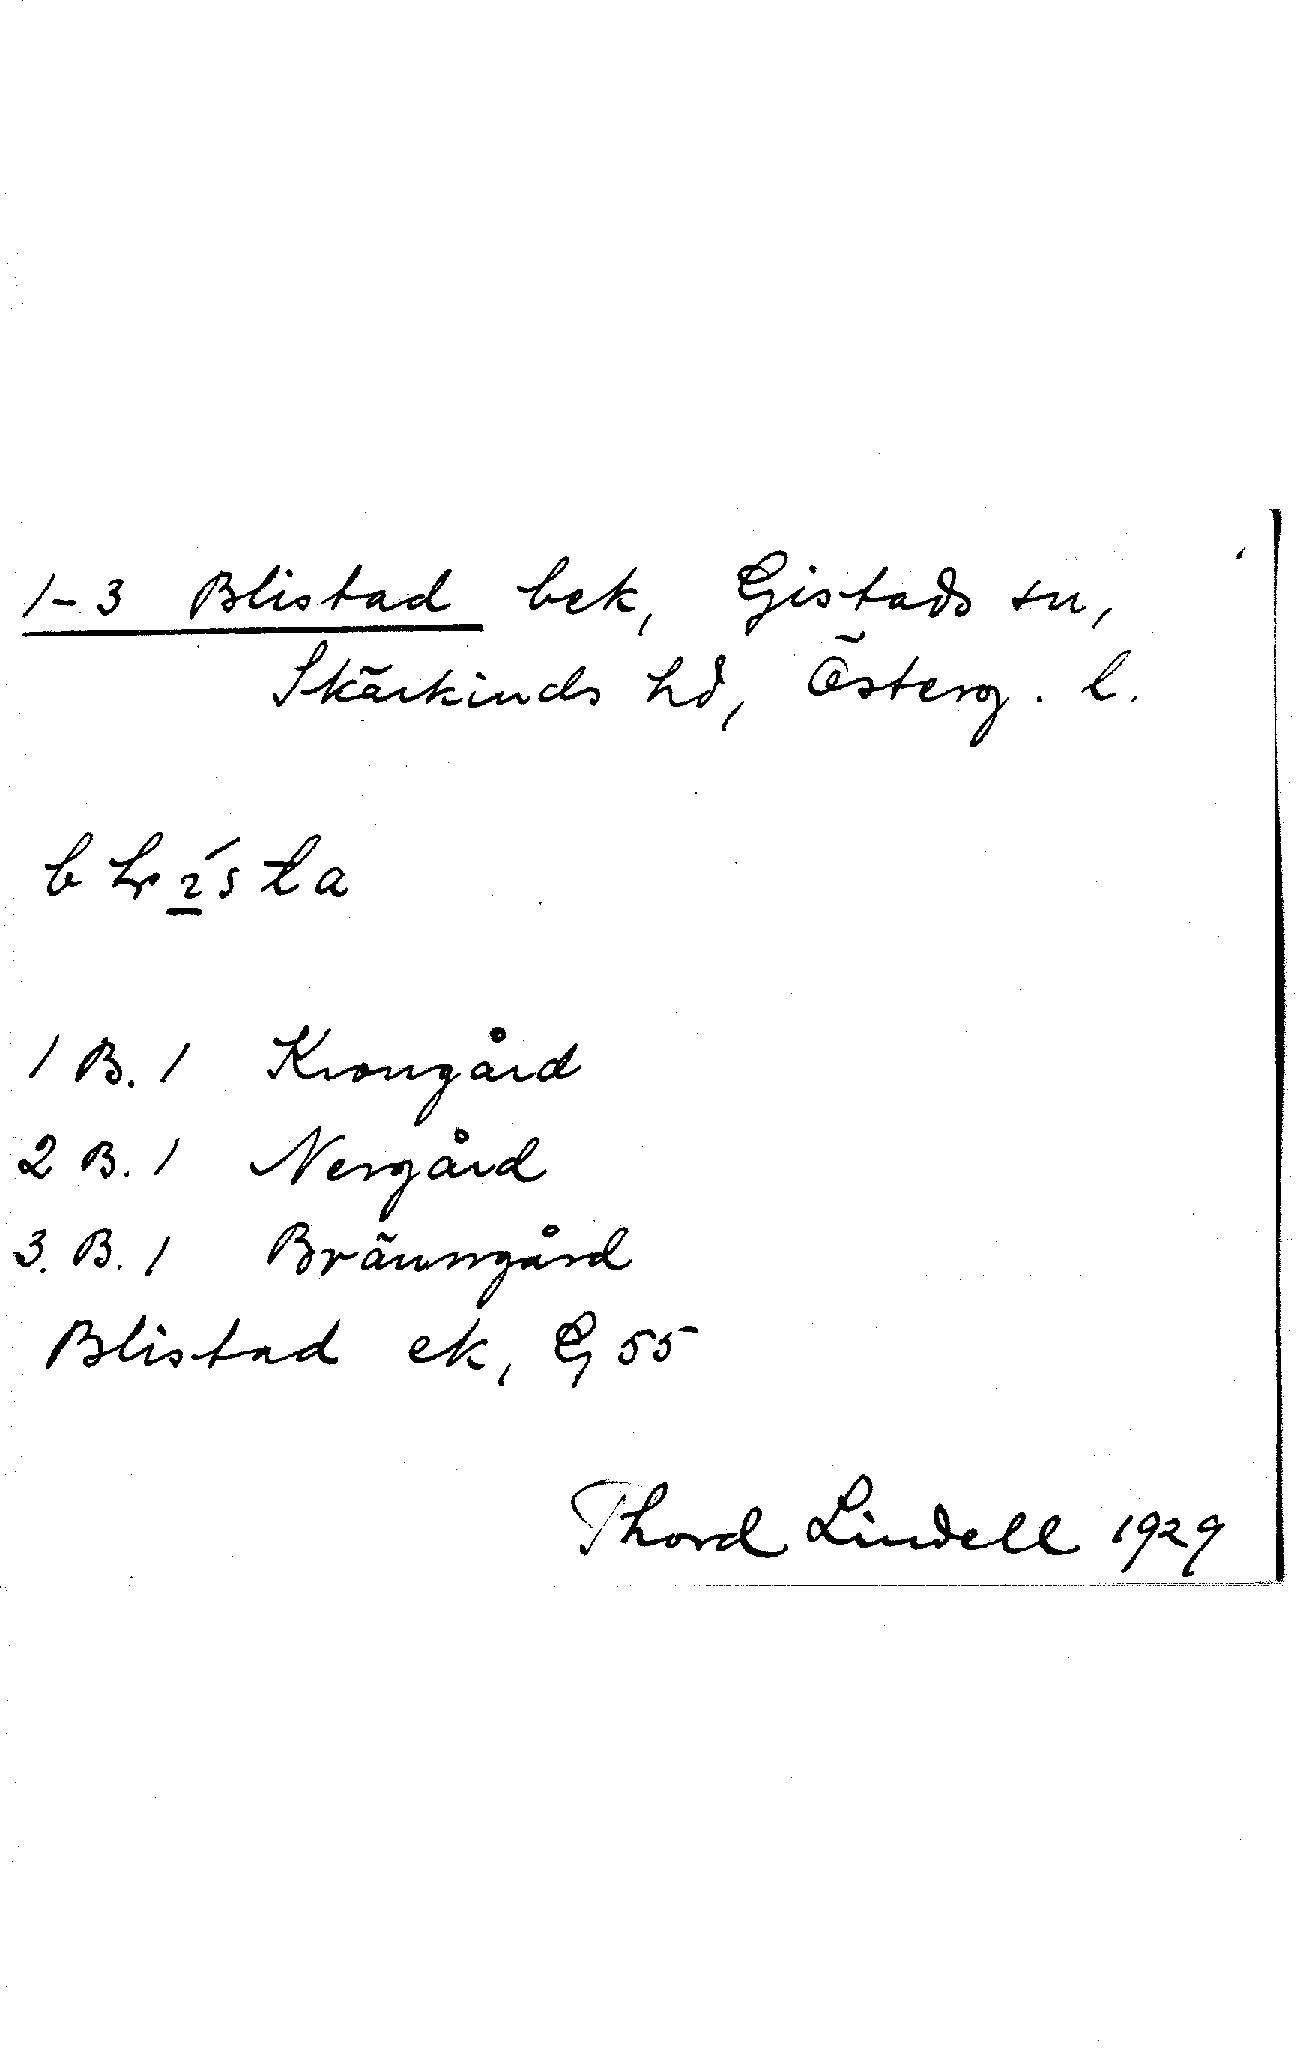 1-3 Blistad bek, Gistads sn,
Skärkinds hd, Österg. l.
1 B. 1 Krongård
2 B. 1 Nergård
3. B. 1 Bränngård
Blistad ek, G 55
Thord Lindell 1929